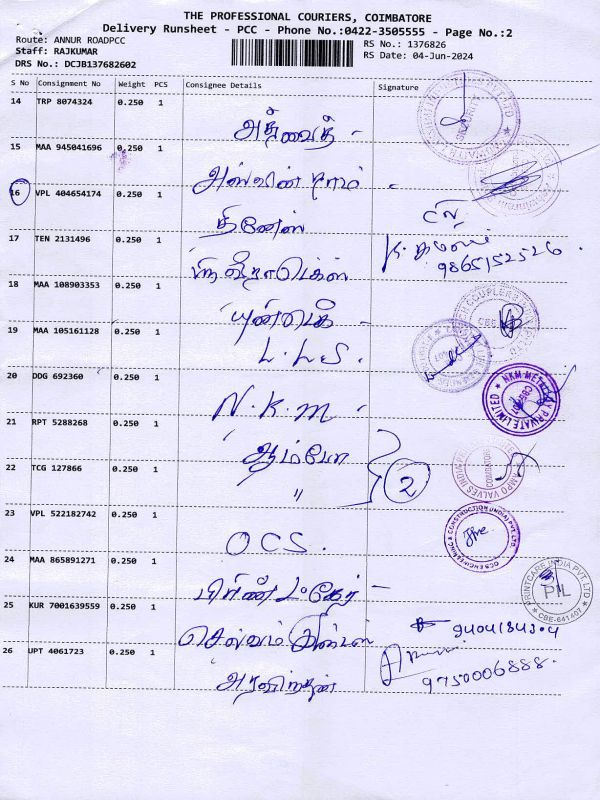 THE PROFESSIONAL COURIERS, COIMBATORE
Delivery Runsheet - PCC - Phone No.:0422-3505555 - Page No.:2
Route: ANNUR ROADPCC
RS No.: 1376826
Staff: RAJKUMAR
RS Date: 04-Jun-2024
DRS No.: DCJB137682602
S No Consignment No Weight PCS Consignee Details Signature
14 TRP 8074324 0.250 1
15 MAA 945041696 0.250 1
அஸ்வின் ராம் -
16 VPL 404654174 0.250 1
தினேஸ்
17 TEN 2131496 0.250 1
9865152526
18 MAA 108903353 0.250 1
19 MAA 105161128 0.250 1
L.L.S.
20 DDG 692360 0.250 1
NKM METALAY PRIVATE LIMITED
N.K.M -
21 RPT 5288268 0.250 1
ஆம்போ
22 TCG 127866 0.250 1
" 2
AMPO VALVES INDIA
23 VPL 522182742 0.250 1
OCS ENGINEERING & CONSTRUCTION (INDIA) PVT LTD.
OCS.
24 MAA 865891271 0.250 1
PRINTCARE INDIA PVT. LTD
PIL
CBE-641407
பிரிண்ட் கேர் -
25 KUR 7001639559 0.250 1
26 UPT 4061723 0.250 1
9750006888.
அரவிந்தன்